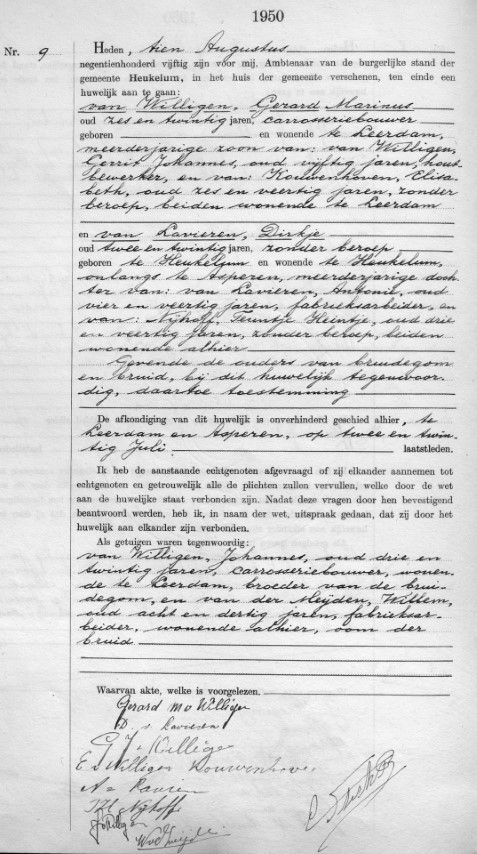 1950
Nr. 9 Heden, tien Augustus
negentienhonderd vijftig zijn voor mij, Ambtenaar van de burgerlijke stand der
gemeente Heukelum, in het huis der gemeente verschenen, ten einde een
huwelijk aan te gaan:
van Willigen, Gerard Marinus
oud zes en twintig jaren, carrosseriebouwer
geboren en wonende te Leerdam,
meerderjarige zoon van: van Willigen,
Gerrit Johannes, oud vijftig jaren, hout-
bewerker, en van: Kouwenhoven, Elisa-
beth, oud zes en veertig jaren, zonder
beroep, beiden wonende te Leerdam
en van Lavieren, Dirkje
oud twee en twintig jaren, zonder beroep
geboren te Heukelum en wonende te Heukelum,
onlangs te Asperen, meerderjarige doch-
ter van: van Lavieren, Antonie, oud
vier en veertig jaren, fabrieksarbeider, en
van: Nijhoff, Teuntje Heintje, oud drie
en veertig jaren, zonder beroep, beiden
wonende alhier
Gevende de ouders van bruidegom
en bruid, bij dit huwelijk tegenwoor-
dig, daartoe toestemming
De afkondiging van dit huwelijk is onverhinderd geschied alhier, te
Leerdam en Asperen, op twee en twin-
tig Juli laatstleden.
Ik heb de aanstaande echtgenoten afgevraagd of zij elkander aannemen tot
echtgenoten en getrouwelijk alle de plichten zullen vervullen, welke door de wet
aan de huwelijke staat verbonden zijn. Nadat deze vragen door hen bevestigend
beantwoord werden, heb ik, in naam der wet, uitspraak gedaan, dat zij door het
huwelijk aan elkander zijn verbonden.
Als getuigen waren tegenwoordig:
van Willigen, Johannes, oud drie en
twintig jaren, carrosseriebouwer, wonen-
de te Leerdam, broeder van de brui-
degom, en van der Meijden, Willem,
oud acht en dertig jaren, fabrieksar-
beider, wonende alhier, oom der
bruid
Waarvan akte, welke is voorgelezen.
Gerard M v Willigen
D. v. Lavieren
G J v Willigen
E v Willigen Kouwenhoven
A v Lavieren
T H Nijhoff